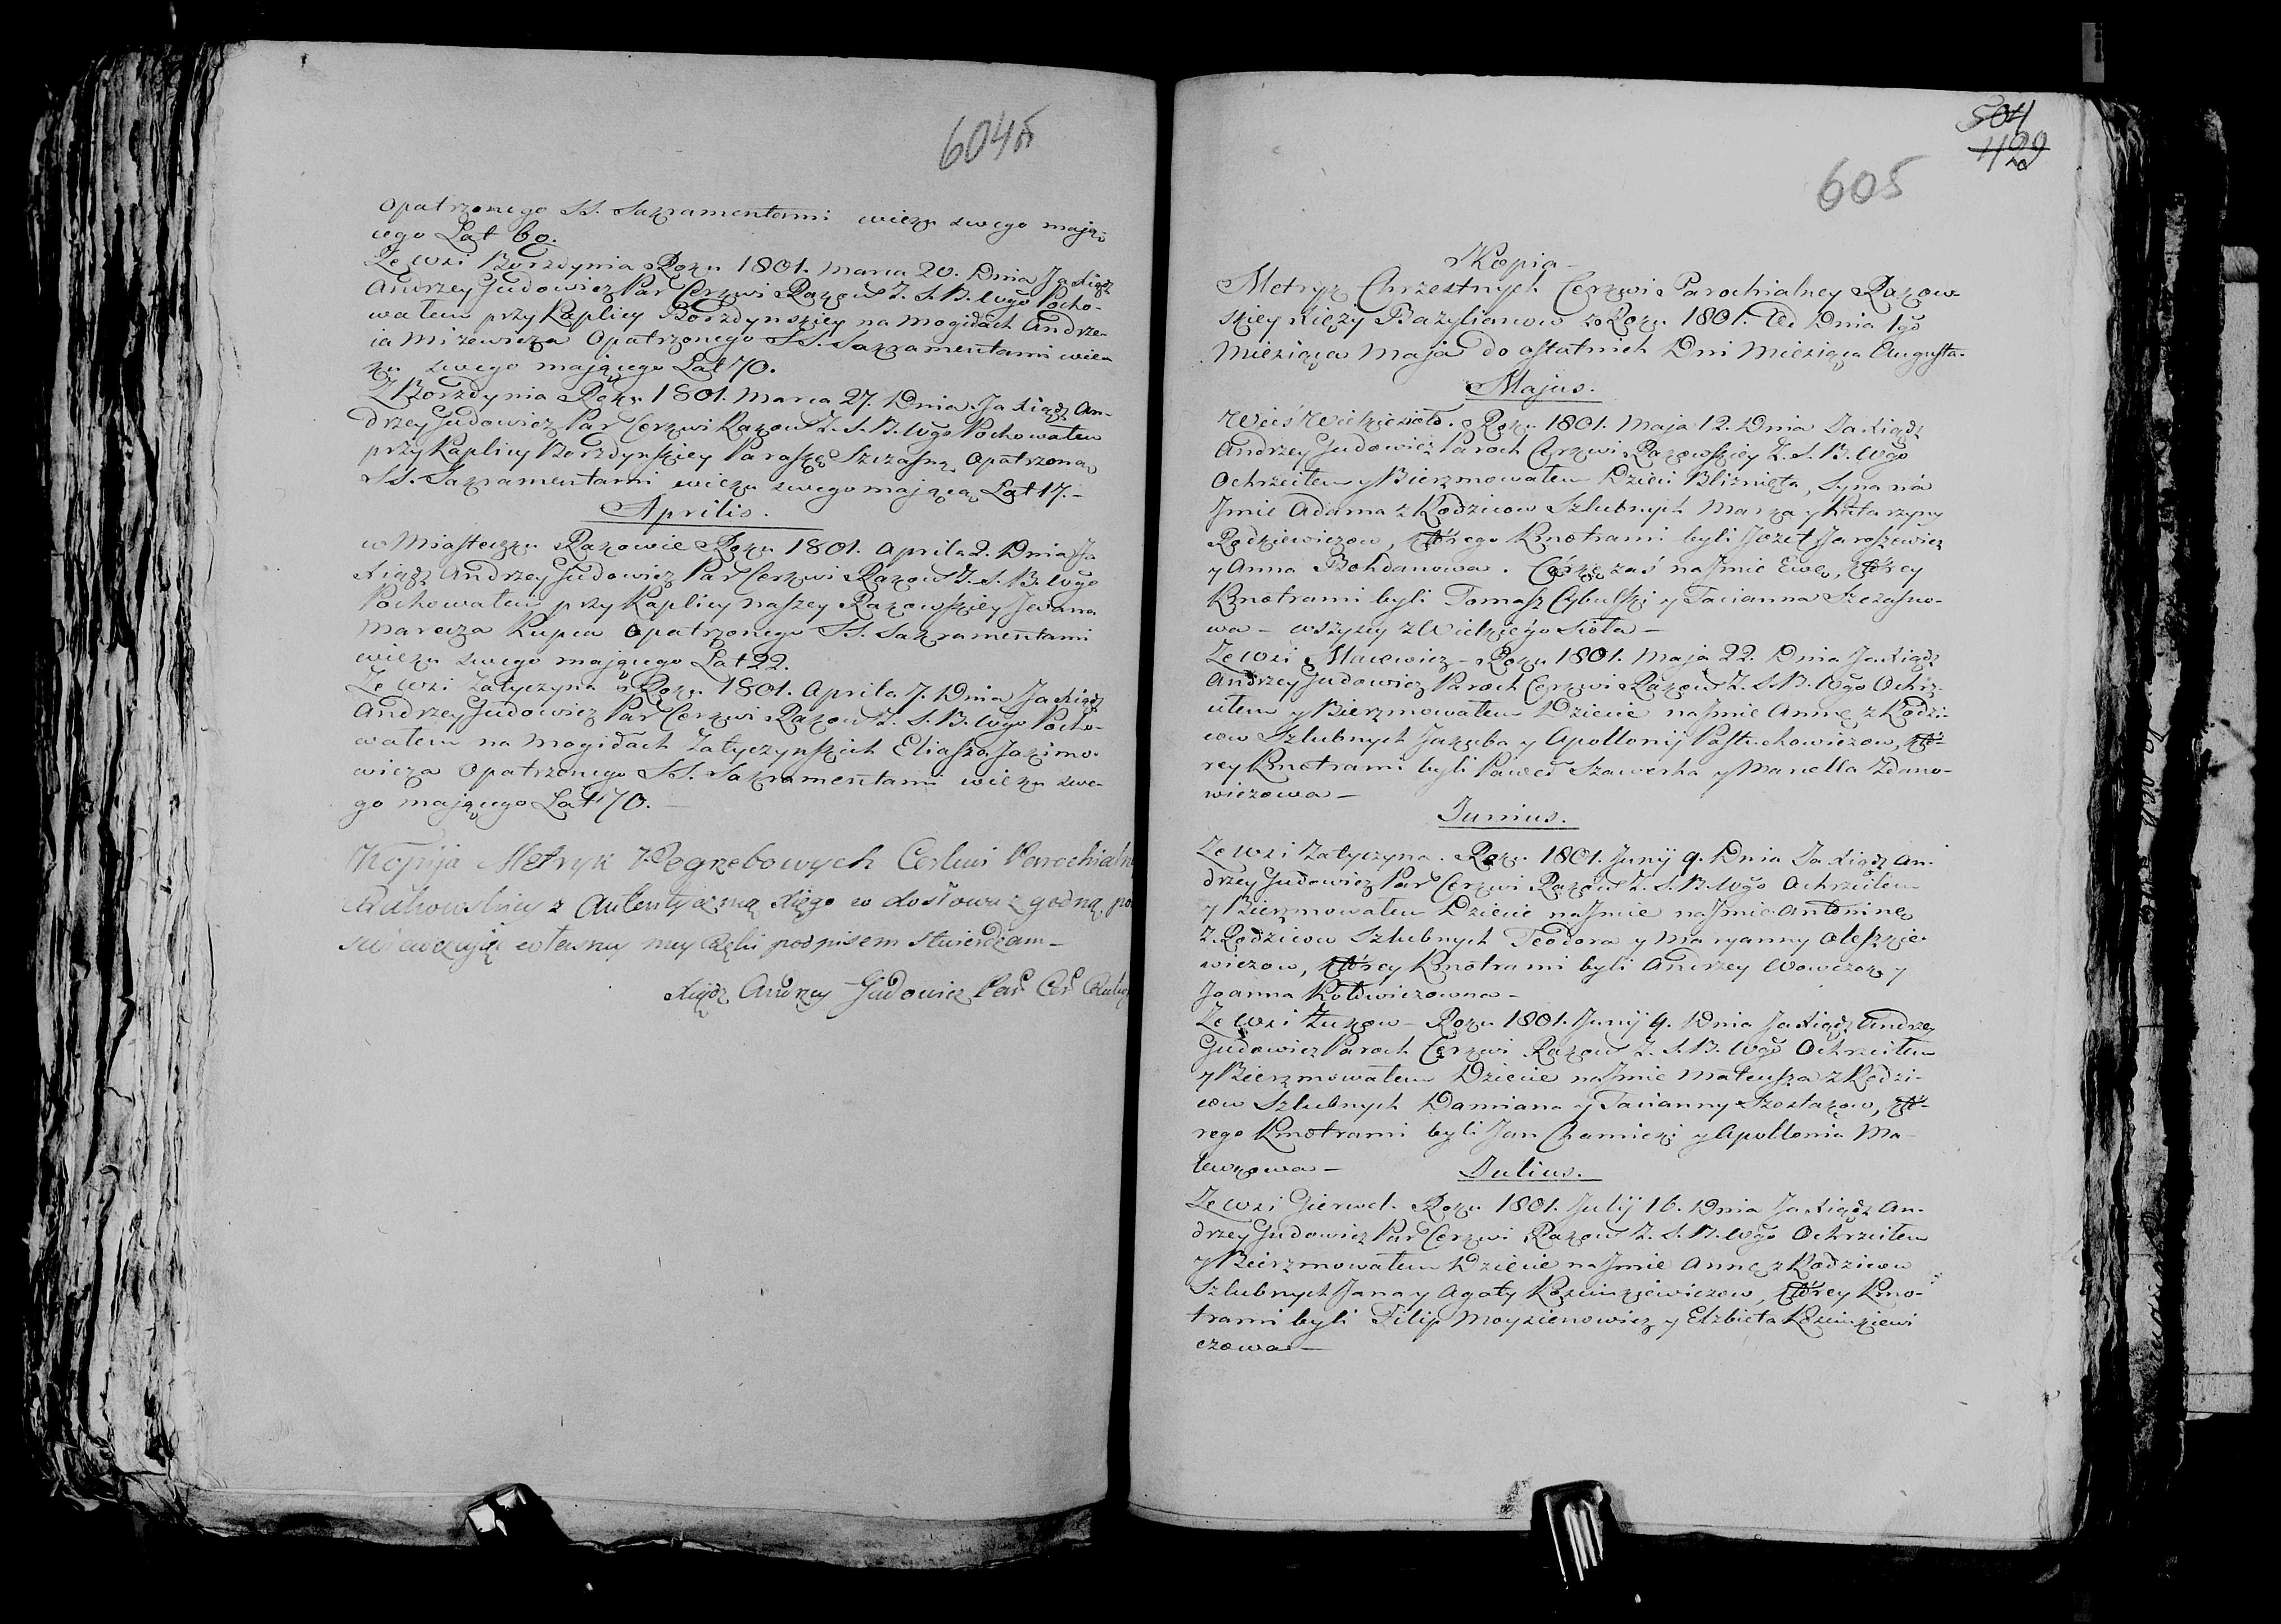 604 об
opatrzonego SS. Sakramentami wieku swego mają-
cego Lat 60.
Ze Wsi Borzdynia Roku 1801. Marca 20. Dnia Ja Xiądz
Andrzey Gudowicz Par Cerkwi Rakow Z. S. B. Wgo Pocho-
wałem przy Kaplicy Borzdynskiey na Mogiłach Andrze-
ia Mizewicza Opatrzonego SS. Sakramentami wie-
ku swego mającego Lat 70.
Z Borzdynia Roku 1801. Marca 27. Dnia Ja Xiądz An-
drzey Gudowicz Par Cerkwi Rakow Z. S. B. Wgo Pochowałem
przy Kaplicy Borzdynskiey Paraskę Szczasną Opatrzoną
SS. Sakramentami wieku swego mającą Lat 17. -
Aprilis.
w Miasteczku Rakowie Roku 1801. Aprila 2. Dnia Ja
Xiądz Andrzey Gudowicz Par Cerkwi Rakow Z. S. B. Wgo
Pochowałem przy Kaplicy naszey Rakowskiey Jwana
Kupca Opatrzonego SS. Sakramentami
wieku swego mającego Lat 22.
Ze Wsi Zatyczyna Roku 1801. Aprila 7. Dnia Ja Xiądz
Andrzey Gudowicz Par Cerkwi Rakow Z. S. B. Wgo Pocho-
wałem na Mogiłach Zatyczynskich Eliasza Jakimo-
wicza Opatrzonego SS. Sakramentami wieku swe-
go mającego Lat 70. -
Kopija Metryk Pogrzebowych Cerkwi Parochialn
z Autentyczną Xięgą co do słowa zgodną, po
własney mey Ręki podpisem stwierdzam -
Xiądz Andrzey Gudowicz Par Cer
504
429
605
Kopia
Metryk Chrzestnych Cerkwi Parochialney Rakow-
skiey Xięży Bazylianow z Roku 1801. Od Dnia 1go
Miesiąca Maja do ostatnich Dni Miesiąca Augusta.
Majus.
Wieś Wielkiesioło. Roku 1801. Maja 12. Dnia Ja Xiądz
Andrzey Gudowicz Paroch Cerkwi Rakowskiey Z. S. B. Wgo
Ochrzciłem y Bierzmowałem Dzieci Bliznięta, Syna na
Jmie Adama z Rodzicow Szlubnych Marka y Katarzyny
Rodziewiczow, którego Kmotrami byli Jozef Jaroszewicz
y Anna Bohdanowa. Córkę zaś na Jmie Ewę, którey
Kmotrami byli Tomasz Cybulski y Tacianna Szczasno-
wa - wszyscy z Wielkiego sioła -
Ze Wsi Macewicz - Roku 1801. Maja 22. Dnia Ja Xiądz
Andrzey Gudowicz Paroch Cerkwi Rakow Z. S. B. Wgo Ochrz-
ciłem y Bierzmowałem Dziecie na Jmie Annę z Rodzi-
cow Szlubnych Jakuba y Apollonij Pastuchowiczow, któ-
rey Kmotrami byli Paweł Szawerha y Marcella Zdano-
wiczowa -
Junius.
Ze Wsi Zatyczyna. Roku 1801. Junij 9. Dnia Ja Xiądz An-
drzey Gudowicz Par Cerkwi Rakow Z. S. B. Wgo Ochrzciłem
y Bierzmowałem Dziecie na Jmie na Jmie Antoninę
Z Rodzicow Szlubnych Teodora y Maryanny Oleszkie-
wiczow, którey Kmotrami byli Andrzey Wowczok y
Joanna Kotowiczowna -
Ze Wsi Żukow - Roku 1801. Junij 9. Dnia Ja Xiądz Andrzey
Gudowicz Paroch Cerkwi Rakow Z. S. B. Wgo Ochrzciłem
y Bierzmowałem Dziecie na Jmie Mateusza z Rodzi-
cow Szlubnych Damiana y Tacianny Szostakow, któ-
rego Kmotrami byli Jan Chamicki y Apollonia Ma-
lewkowa -
Julius.
Ze Wsi Gierwel. Roku 1801. Julij 16. Dnia Ja Xiądz An-
drzey Gudowicz Par Cerkwi Rakow Z. S. B. Wgo Ochrzciłem
y Bierzmowałem Dziecie na Jmie Annę z Rodzicow
Szlubnych Jana y Agaty Kozuszkiewiczow, którey Kmo-
trami byli Filip Moysienowicz y Elżbieta Kozuszkiewi
czowa -